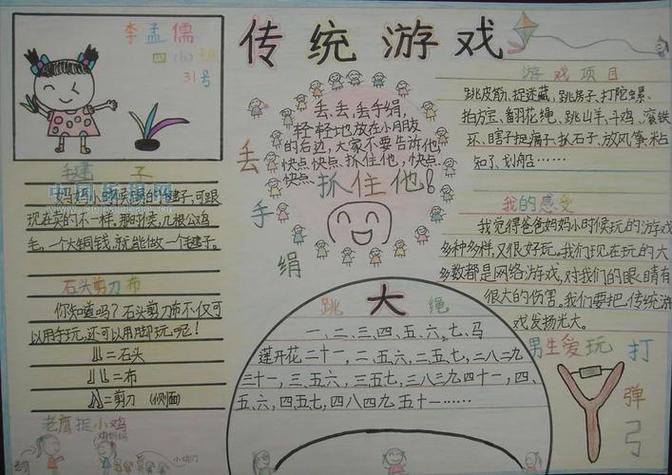 李孟儒
四(6)班
31号
传统游戏
毽子
妈妈小时候踢的毽子,可跟
现在卖的不一样。那时候,几根公鸡
毛,一个大铜钱,就能做一个毽子。
石头剪刀布
你知道吗?石头剪刀布不仅可
以用手玩,还可以用脚玩呢!
=石头
=布
=剪刀 (侧面)
老鹰捉小鸡
丢手绢
丢、丢、丢手绢,
轻轻地放在小朋友
的后边,大家不要告诉他,
快点快点抓住他,快点
快点 抓住他!
跳大绳
一、二、三、四、五、六、七、马
莲开花二十一,二五六,二五七,二八二九
三十一,三五六,三五七,三八三九四十一,四
五、六,四五七,四八四九五十一……
游戏项目
跳皮筋、捉迷藏、跳房子、打陀螺、
拍方宝、翻花绳、跳山羊、斗鸡、滚铁
环、瞎子捉瘸子、抓石子、放风筝、粘
知了、划船……
我的感受
我觉得爸爸妈妈小时候玩的游戏
多种多样,又很好玩。我们现在玩的大
多数都是网络游戏,对我们的眼睛有
很大的伤害。我们要把传统游
戏发扬光大。
男生爱玩打弹弓